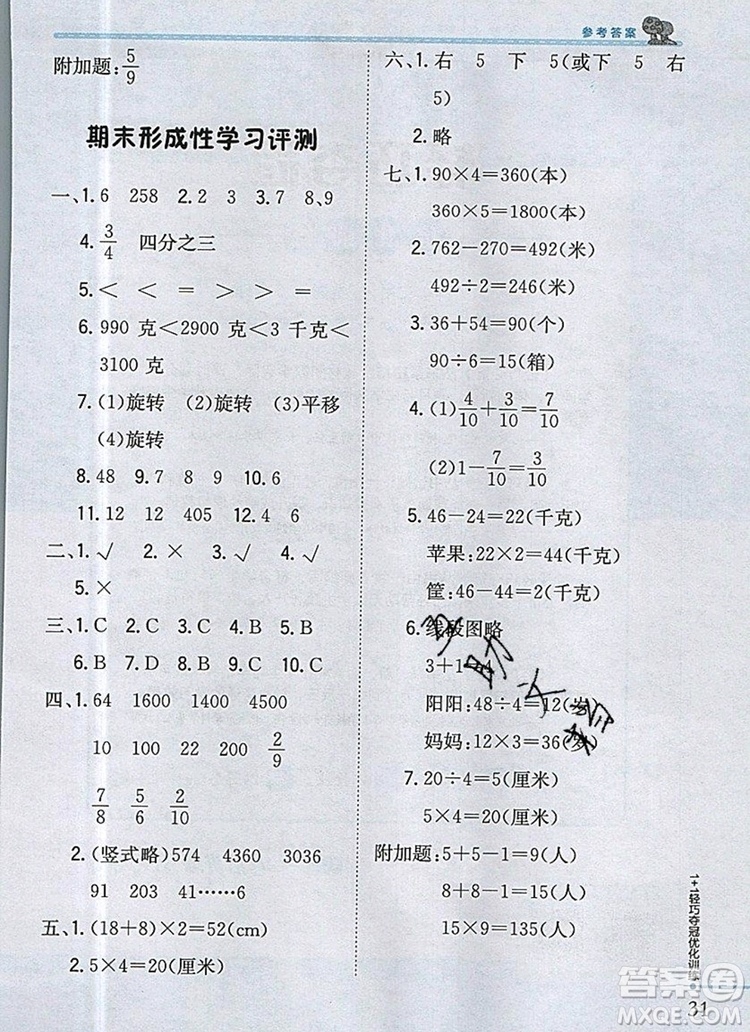 参考答案
附加题:5/9
期末形成性学习评测
一、1.6 258 2.2 3 3.7 8、9
4.3/4 四分之三
5.＜ ＜ ＝ ＞ ＞ ＜
6.990 克＜2900 克＜3 千克＜
3100 克
7.(1)旋转 (2)旋转 (3)平移
(4)旋转
8.48 9.7 8 9 10.6
11.12 12 405 12.4 6
二、1.√ 2.× 3.√ 4.√
5.×
三、1.C 2.C 3.B 4.B 5.B
6.B 7.D 8.C 9.B 10.C
四、1.64 1600 1400 4500
10 100 22 200 2/9
7/8 5/6 2/10
2.(竖式略)574 4360 3036
91 203 41……6
五、1.(18+8)×2=52(cm)
2.5×4=20(厘米)
六、1.右 5 下 5(或下 5 右
5)
2.略
七、1.90×4=360(本)
360×5=1800(本)
2.762-270=492(米)
492÷2=246(米)
3.36+54=90(个)
90÷6=15(箱)
4.(1)4/10+3/10=7/10
(2)1-7/10=3/10
5.46-24=22(千克)
苹果:22×2=44(千克)
筐:46-44=2(千克)
6.线段图略
3+1=4
阳阳:48÷4=12(岁)
妈妈:12×3=36(岁)
7.20÷4=5(厘米)
5×4=20(厘米)
附加题:5+5-1=9(人)
8+8-1=15(人)
15×9=135(人)
1+1轻巧夺冠优化训练
31
答案圈
MXQE.COM